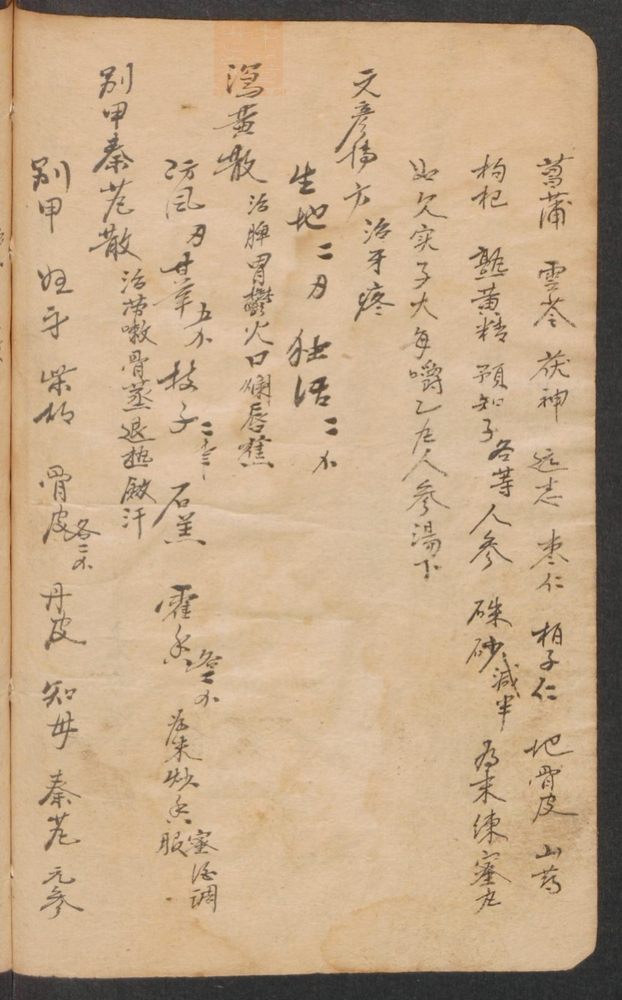 菖蒲 雲苓 茯神 远志 枣仁 柏子仁 地骨皮 山药
枸杞 熟黄精 預知子各等 人參 硃砂减半 為末煉蜜丸
如欠实子大每嚼乙丸人參湯下
文彥博方 治牙疼
生地二刃 独活二
瀉黃散 治脾胃鬱火口爛唇蕉
防风刃 甘草五 枝子二 石羔 霍香 各二 為末炒香 蜜酒調服
别甲秦芃散 治劳嗽骨蒸退热斂汗
别甲 柴胡 骨皮各二 丹皮 知母 秦芃 元參